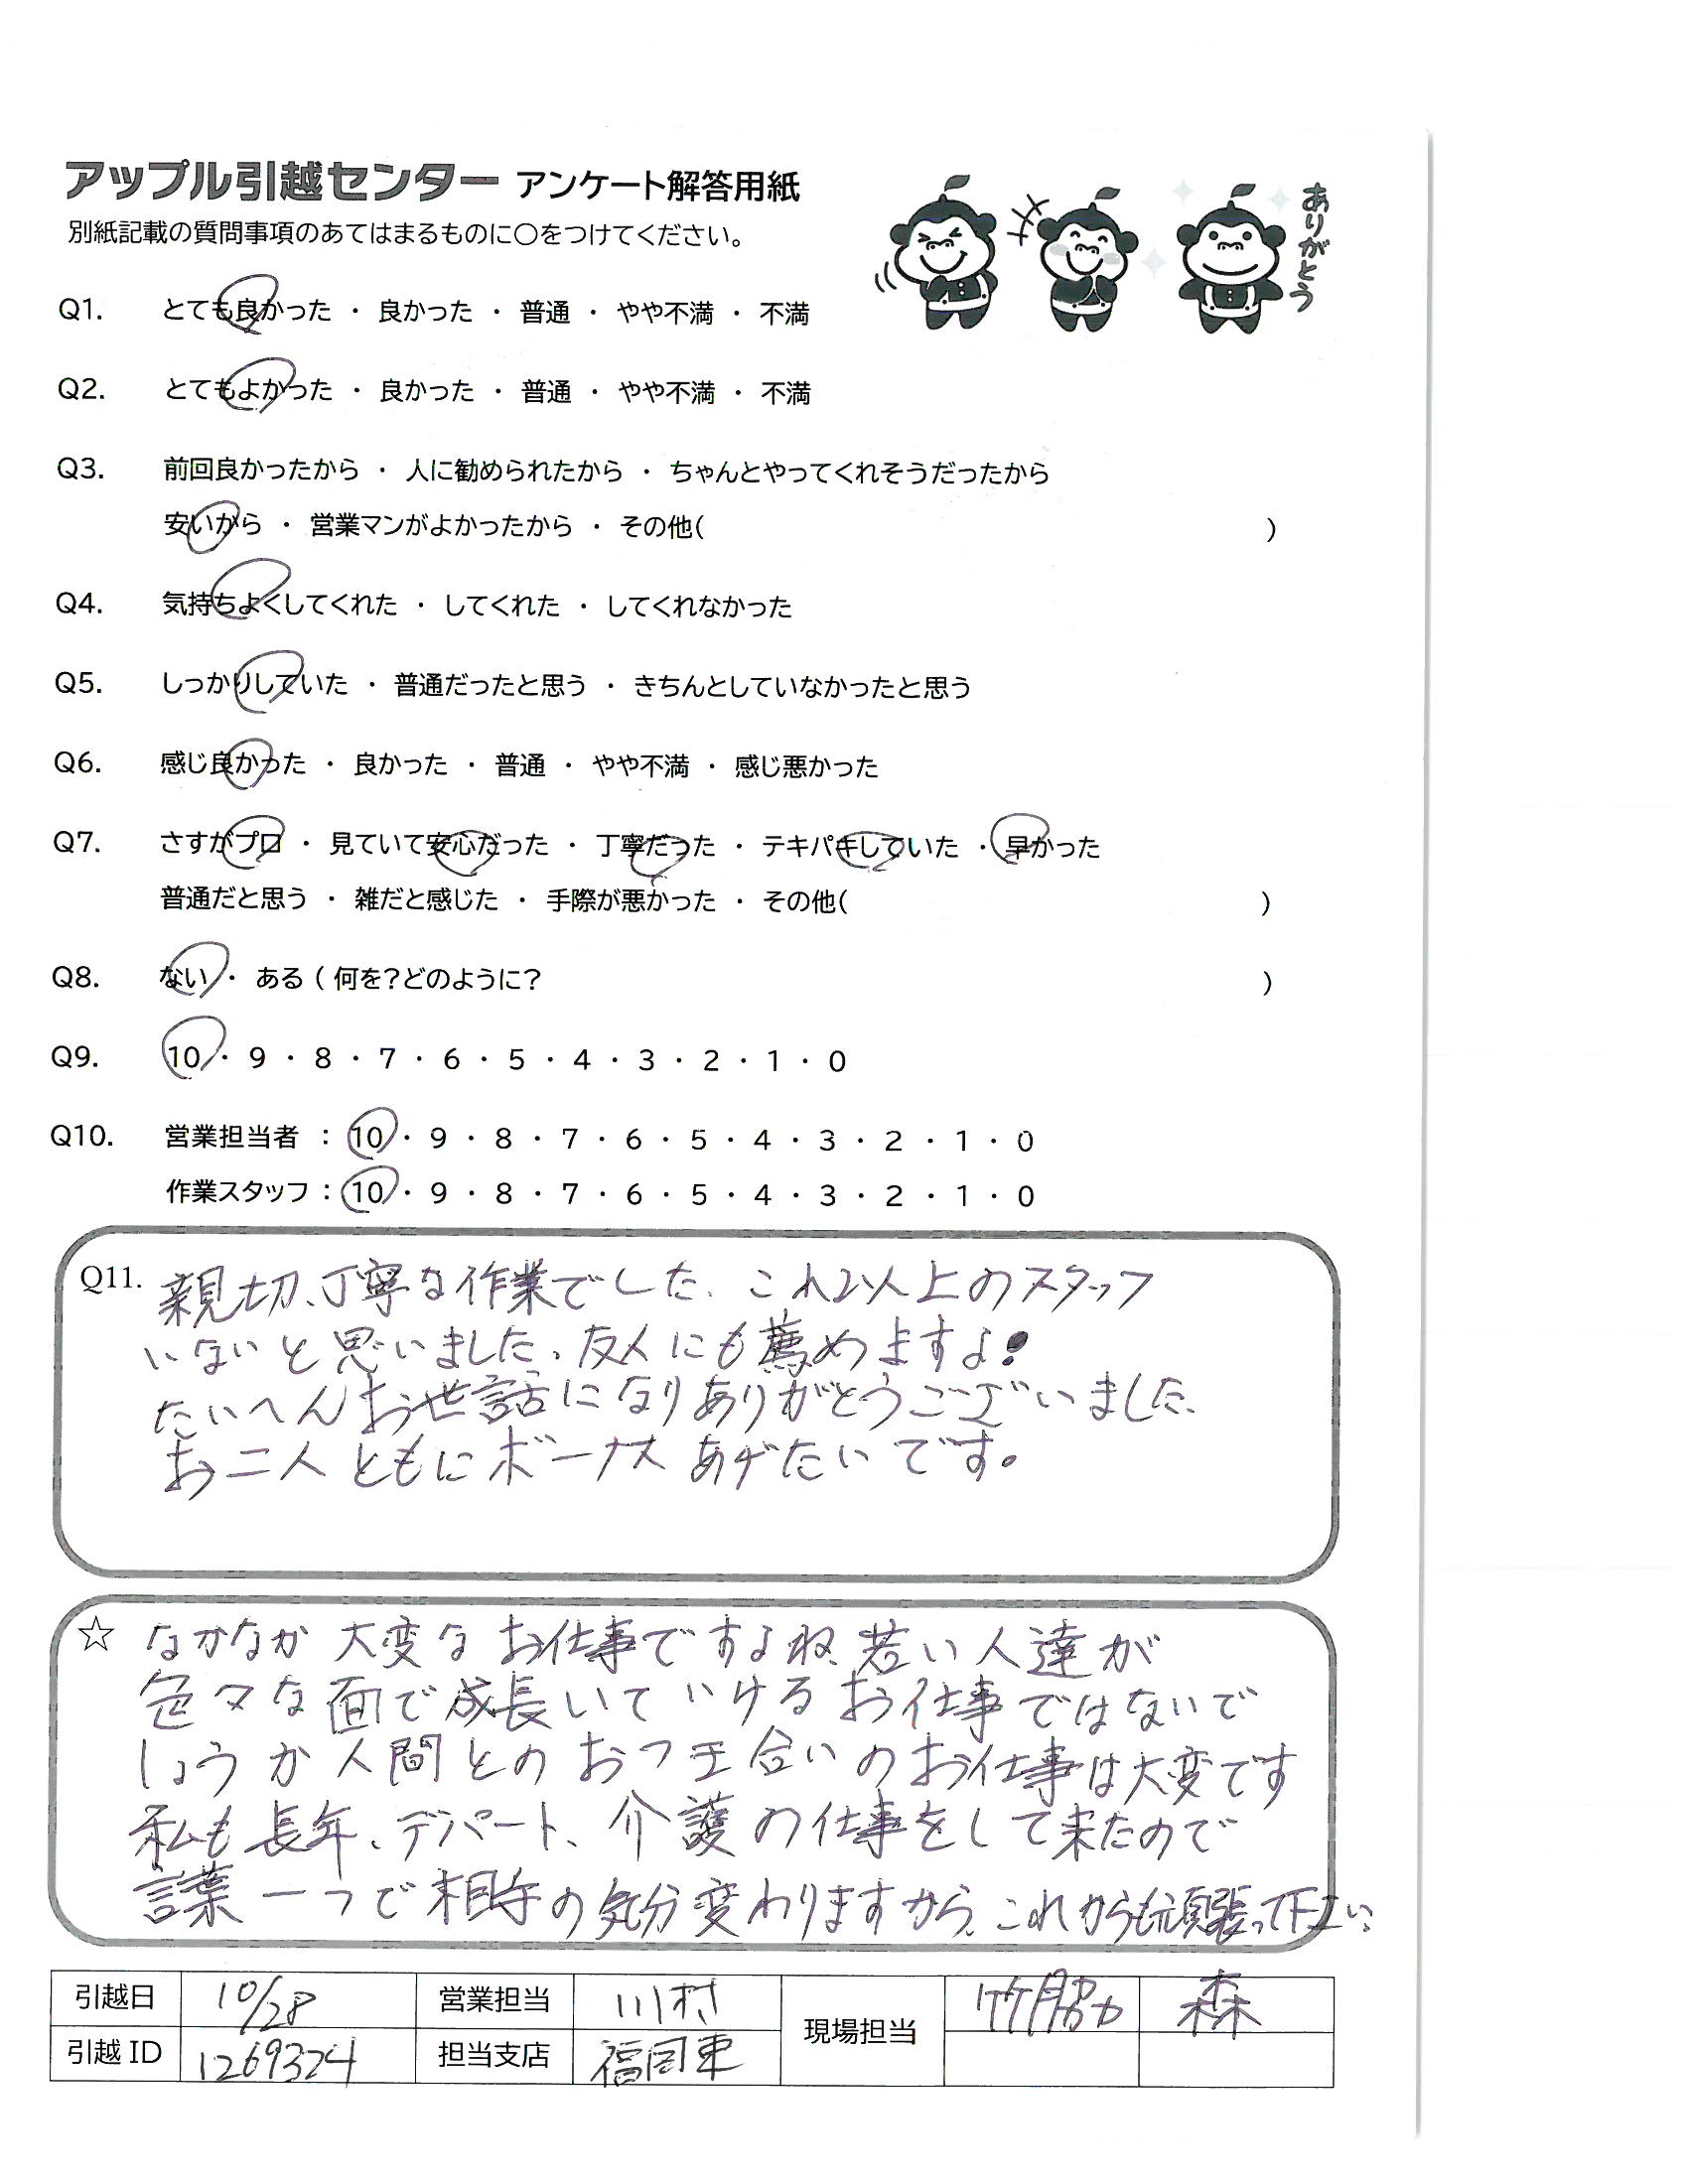 アップル引越センター アンケート解答用紙
別紙記載の質問事項のあてはまるものに〇をつけてください。
ありがとう
Q1. とても良かった ・ 良かった ・ 普通 ・ やや不満 ・ 不満
Q2. とてもよかった ・ 良かった ・ 普通 ・ やや不満 ・ 不満
Q3. 前回良かったから ・ 人に勧められたから ・ ちゃんとやってくれそうだったから
安いから ・ 営業マンがよかったから ・ その他( )
Q4. 気持ちよくしてくれた ・ してくれた ・ してくれなかった
Q5. しっかりしていた ・ 普通だったと思う ・ きちんとしていなかったと思う
Q6. 感じ良かった ・ 良かった ・ 普通 ・ やや不満 ・ 感じ悪かった
Q7. さすがプロ ・ 見ていて安心だった ・ 丁寧だった ・ テキパキしていた ・ 早かった
普通だと思う ・ 雑だと感じた ・ 手際が悪かった ・ その他( )
Q8. ない ・ ある ( 何を?どのように? )
Q9. 10 ・ 9 ・ 8 ・ 7 ・ 6 ・ 5 ・ 4 ・ 3 ・ 2 ・ 1 ・ 0
Q10. 営業担当者 : 10 ・ 9 ・ 8 ・ 7 ・ 6 ・ 5 ・ 4 ・ 3 ・ 2 ・ 1 ・ 0
作業スタッフ : 10 ・ 9 ・ 8 ・ 7 ・ 6 ・ 5 ・ 4 ・ 3 ・ 2 ・ 1 ・ 0
Q11. 親切、丁寧な作業でした、これ以上のスタッフ
いないと思いました、友人にも薦めますよ!
たいへんお世話になりありがとうございました、
お二人ともにボーナスあげたいです。
☆ なかなか大変なお仕事ですよね、若い人達が
色々な面で成長いていけるお仕事ではないで
しょうか人間とのおつき合いのお仕事は大変です
私も長年、デパート、介護の仕事をして来たので
言葉一つで相手の気分変わりますから、これからも頑張って下さい。
引越日 10/28 営業担当 川村 現場担当 竹脇 森
引越 ID 1269324 担当支店 福岡東